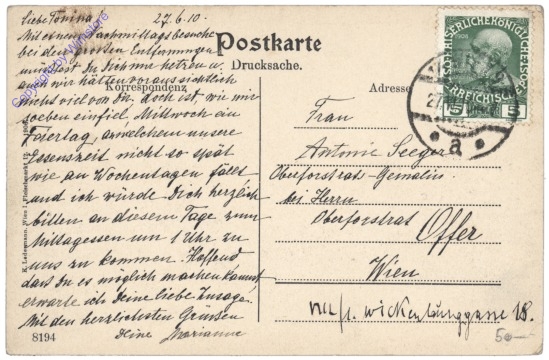 Liebe Tonina, 27.6.10.
Mit einem Nachmittagsbesuche
bei den großen Entfernungen
müsstest Du Dich
und wir hätten voraussichtlich
nichts viel von Dir. Doch ist, wie mir
soeben einfiel, Mittwoch ein
Feiertag, an welchem unsere
Essenszeit nicht so spät
wie an Wochentagen fällt
und ich würde Dich herzlich
bitten an diesem Tage zum
Mittagessen um 1 Uhr zu
uns zu kommen. Hoffend
dass Du es möglich machen kannst
erwarte ich Deine liebe Zusage!
Mit den herzlichsten Grüssen
Deine Marianne
Postkarte
Drucksache.
Korrespondenz
Adresse
Frau
Antonie Seeger
Oberforstrat-Gemalin
bei Herrn
Oberforstrat
Offer
Wien
VIII/1. Wickenburggasse 18.
50—
8194
K. Ledermann, Wien I., Fleischmarkt 12
KAISERLICHE KÖNIGLICHE
ÖSTERREICHISCHE
5 5
a